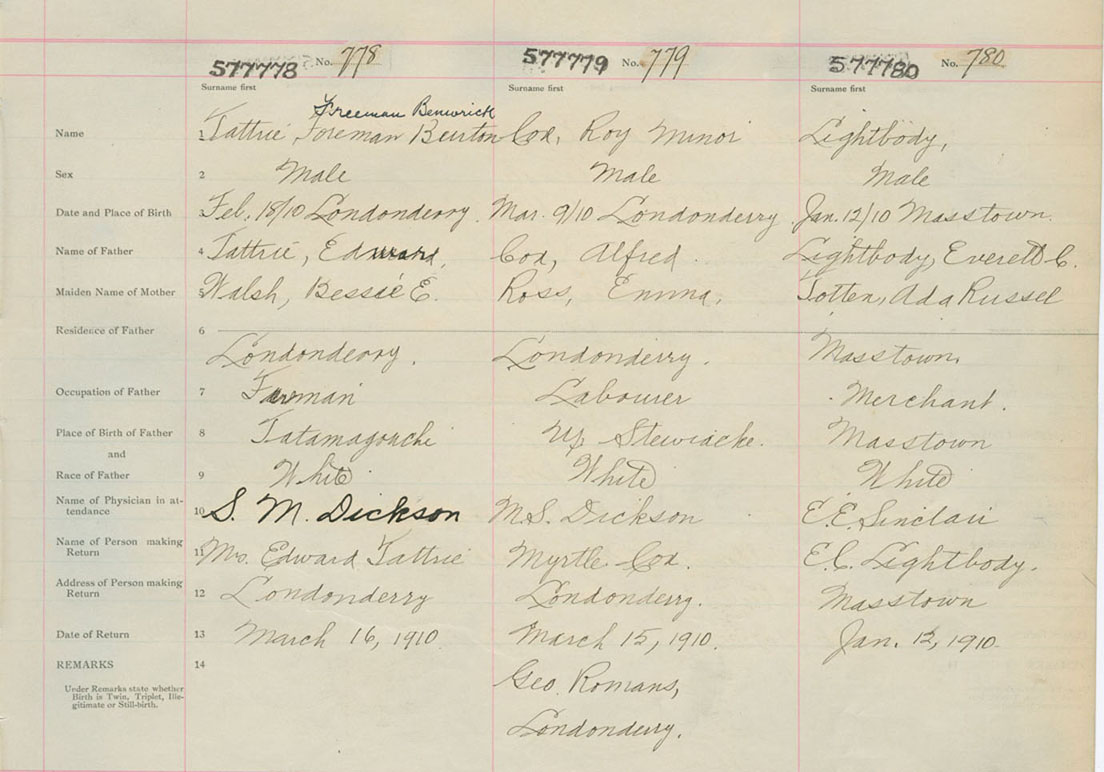 577778 No. 778 577779 No. 779 577780 No. 780
Surname first Surname first Surname first
Freeman Benwrick
Name 1 Tattrie Foreman Beurton Cox, Roy Minor Lightbody,
Sex 2 Male Male Male
Date and Place of Birth 3 Feb. 18/10 Londonderry. Mar. 9/10 Londonderry Jan. 12/10 Masstown.
Name of Father 4 Tattrie, Edward, Cox, Alfred. Lightbody, Everett C.
Maiden Name of Mother 5 Walsh, Bessie E. Ross, Emma, Totten, Ada Russel
Residence of Father 6
Londonderry. Londonderry. Masstown,
Occupation of Father 7 Farman Labourer Merchant.
Place of Birth of Father 8 Tatamagouchi Up Stewiacke. Masstown
and
Race of Father 9 White White White
Name of Physician in at-
tendance 10 S. M. Dickson M.S. Dickson E.E. Sinclair
Name of Person making
Return 11 Mr. Edward Tattrie Myrtle Cox. E.C. Lightbody.
Address of Person making
Return 12 Londonderry Londonderry. Masstown
Date of Return 13 March 16, 1910. March 15, 1910. Jan. 12, 1910.
REMARKS 14
Geo. Romans,
Under Remarks state whether
Birth is Twin, Triplet, Ille-
gitimate or Still-birth.
Londonderry.